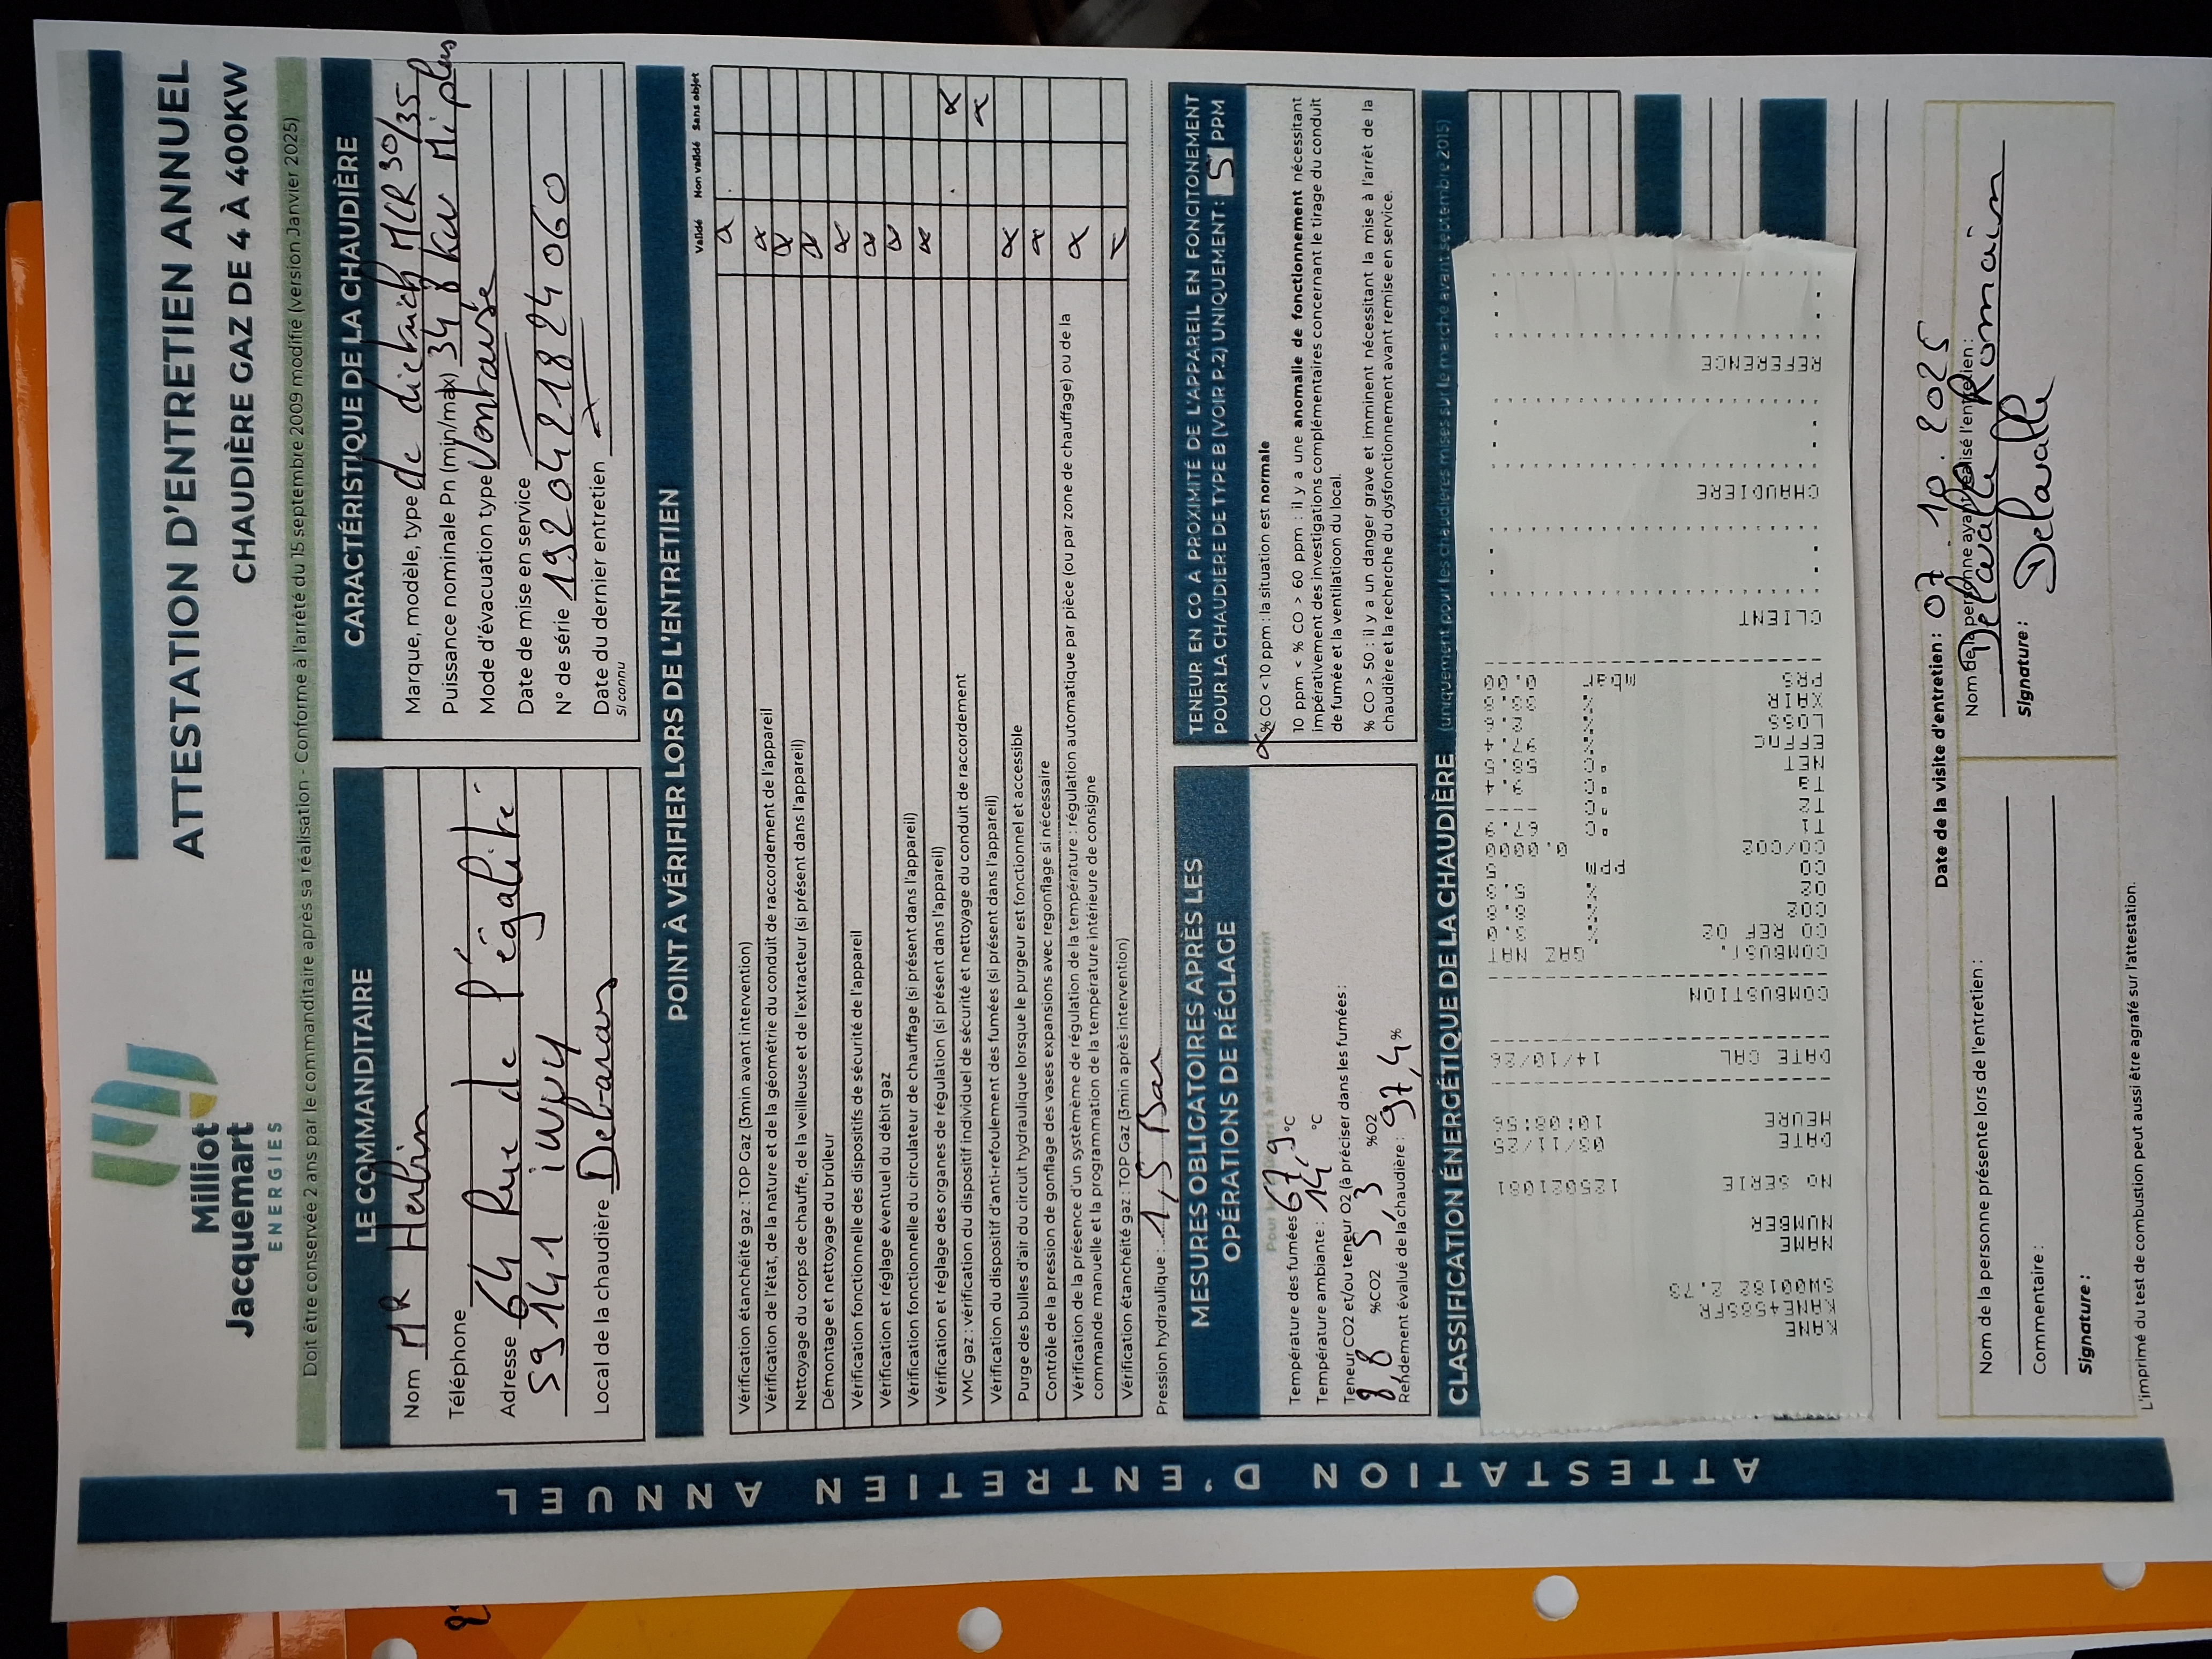 Milliot
Jacquemart
ENERGIES
ATTESTATION D'ENTRETIEN ANNUEL
CHAUDIÈRE GAZ DE 4 À 400KW
Doit être conservée 2 ans par le commanditaire après sa réalisation - Conforme à l'arrêté du 15 septembre 2009 modifié (version Janvier 2025)
LE COMMANDITAIRE
Nom MR Herbin
Téléphone
Adresse 64 Rue de l'égalité
59141 iwuy
Local de la chaudière Debarras
CARACTÉRISTIQUE DE LA CHAUDIÈRE
Marque, modèle, type de dietrich MCR 30/35
Mi plus
Puissance nominale Pn (min/max) 34 8 kw
Mode d'évacuation type Ventouse
Date de mise en service
N° de série 1920421824060
Date du dernier entretien
Si connu
POINT À VÉRIFIER LORS DE L'ENTRETIEN
Validé Non validé Sans objet
Vérification étanchéité gaz : TOP Gaz (3min avant intervention)
Vérification de l'état, de la nature et de la géométrie du conduit de raccordement de l'appareil
Nettoyage du corps de chauffe, de la veilleuse et de l'extracteur (si présent dans l'appareil)
Démontage et nettoyage du brûleur
Vérification fonctionnelle des dispositifs de sécurité de l'appareil
Vérification et réglage éventuel du débit gaz
Vérification fonctionnelle du circulateur de chauffage (si présent dans l'appareil)
Vérification et réglage des organes de régulation (si présent dans l'appareil)
VMC gaz : vérification du dispositif individuel de sécurité et nettoyage du conduit de raccordement
Vérification du dispositif d'anti-refoulement des fumées (si présent dans l'appareil)
Purge des bulles d'air du circuit hydraulique lorsque le purgeur est fonctionnel et accessible
Contrôle de la pression de gonflage des vases expansions avec regonflage si nécessaire
Vérification de la présence d'un systèmème de régulation de la température : régulation automatique par pièce (ou par zone de chauffage) ou de la
commande manuelle et la programmation de la température intérieure de consigne
Vérification étanchéité gaz : TOP Gaz (3min après intervention)
Pression hydraulique : 1,5 Bar
MESURES OBLIGATOIRES APRÈS LES
OPÉRATIONS DE RÉGLAGE
Température des fumées 67,9 °C
Température ambiante : 14 °C
Teneur CO2 et/ou teneur O2 (à préciser dans les fumées) :
8,8 %CO2 5,3 %O2
Rendement évalué de la chaudière : 97,4 %
TENEUR EN CO À PROXIMITÉ DE L'APPAREIL EN FONCITONEMENT
POUR LA CHAUDIÈRE DE TYPE B (VOIR P.2) UNIQUEMENT : 5 PPM
% CO < 10 ppm : la situation est normale
10 ppm < % CO > 60 ppm : il y a une anomalle de fonctionnement nécessitant
impérativement des investigations complémentaires concernant le tirage du conduit
de fumée et la ventilation du local.
% CO > 50 : il y a un danger grave et imminent nécessitant la mise à l'arrêt de la
chaudière et la recherche du dysfonctionnement avant remise en service.
CLASSIFICATION ÉNERGÉTIQUE DE LA CHAUDIÈRE (uniquement pour les chaudières mises sur le marché avant septembre 2015)
KANE
KANE458SFR
NAME
NUMBER
NO SERIE
DATE
HEURE
DATE CAL 14/10/26
COMBUSTION
COMBUST. GAZ NAT
CO REF O2
CO2
O2
CO ppm
CO/CO2 0.0000
T1
T2
NET
EFF
LOSS
XAIR
PRS mbar 0.00
CLIENT
CHAUDIERE
REFERENCE
Date de la visite d'entretien : 07.10.2025
Nom de la personne présente lors de l'entretien :
Commentaire :
Signature :
Nom de la personne ayant réalisé l'entretien :
Delavalle Romain
Signature : Delavalle
L'imprimé du test de combustion peut aussi être agrafé sur l'attestation.
ATTESTATION D'ENTRETIEN ANNUEL